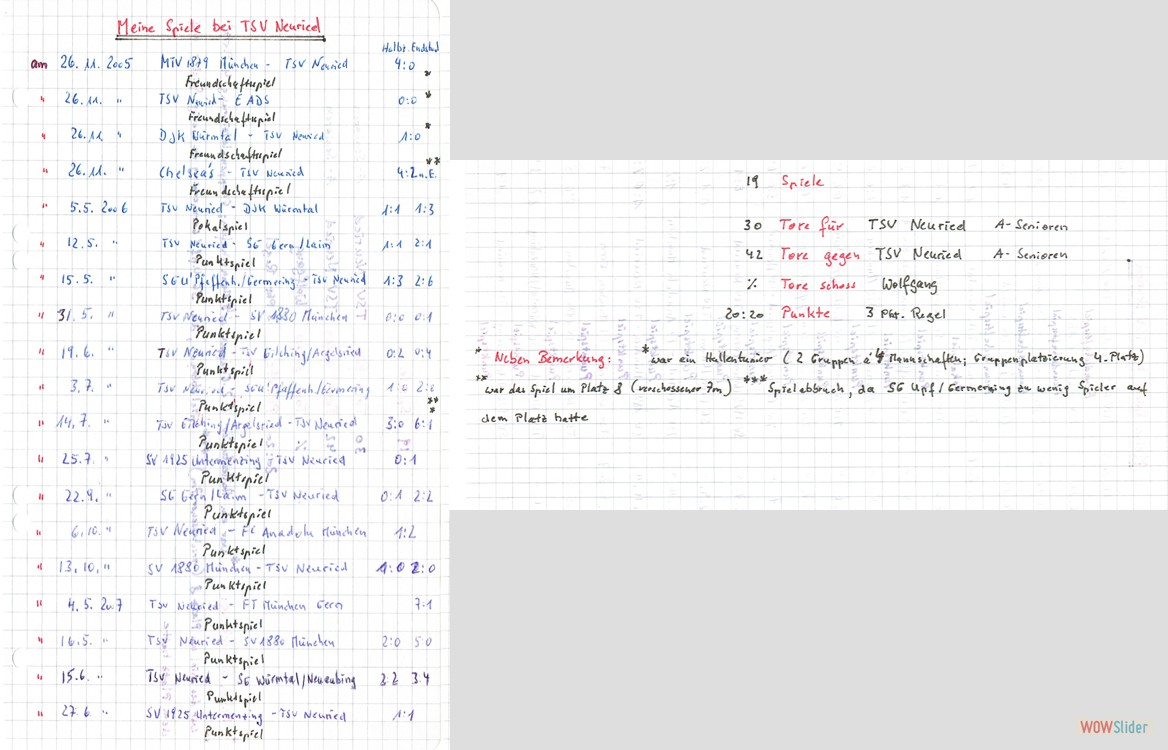 Meine Spiele bei TSV Neuried
Halbz. Endstd
am 26. 11. 2005 MTV 1879 München - TSV Neuried 4:0
Freundschaftsspiel *
" 26.11. " TSV Neuried - EADS 0:0 *
Freundschaftsspiel
" 26.11 " DJK Würmtal - TSV Neuried 1:0 *
Freundschaftsspiel
" 26.11. " Chelsea's - TSV Neuried 4:2 n.E. **
Freundschaftsspiel
" 5.5. 2006 TSV Neuried - DJK Würmtal 1:1 1:3
Pokalspiel
" 12.5. " TSV Neuried - SG Gern/Laim 1:1 2:1
Punktspiel
" 15.5. " SGU'Pfaffenh./Germering - TSV Neuried 1:3 2:6
Punktspiel
" 31.5. " TSV Neuried - SV 1880 München 0:0 0:1
Punktspiel
" 19.6. " TSV Neuried - TSV Gilching/Argelsried 0:2 0:4
Punktspiel
" 3.7. " TSV Neuried - SGU'Pfaffenh/Germering 1:0 2:6
Punktspiel ***
" 14.7. " TSV Gilching/Argelsried - TSV Neuried 3:0 6:1
Punktspiel
" 25.7. " SV 1925 Untermenzing - TSV Neuried 0:1
Punktspiel
" 22.9. " SG Gern/Laim - TSV Neuried 0:1 2:2
Punktspiel
" 6.10. " TSV Neuried - FC Anadolu München 1:2
Punktspiel
" 13.10. " SV 1880 München - TSV Neuried 1:0 2:0
Punktspiel
" 4.5. 2007 TSV Neuried - FT München Gern 7:1
Punktspiel
" 16.5. " TSV Neuried - SV 1880 München 2:0 5:0
Punktspiel
" 15.6. " TSV Neuried - SG Würmtal/Neuaubing 2:2 3:4
Punktspiel
" 27.6 " SV 1925 Untermenzing - TSV Neuried 1:1
Punktspiel
19 Spiele
30 Tore für TSV Neuried A-Senioren
42 Tore gegen TSV Neuried A-Senioren
% Tore schoss Wolfgang
20:20 Punkte 3 Pkt. Regel
* Neben Bemerkung: * war ein Hallentunier (2 Gruppen a' 4 Mannschaften; Gruppenplatzierung 4. Platz)
** war das Spiel um Platz 8 (verschossener 7m) *** Spielabbruch, da SG Upf/Germering zu wenig Spieler auf
dem Platz hatte
WOWSlider